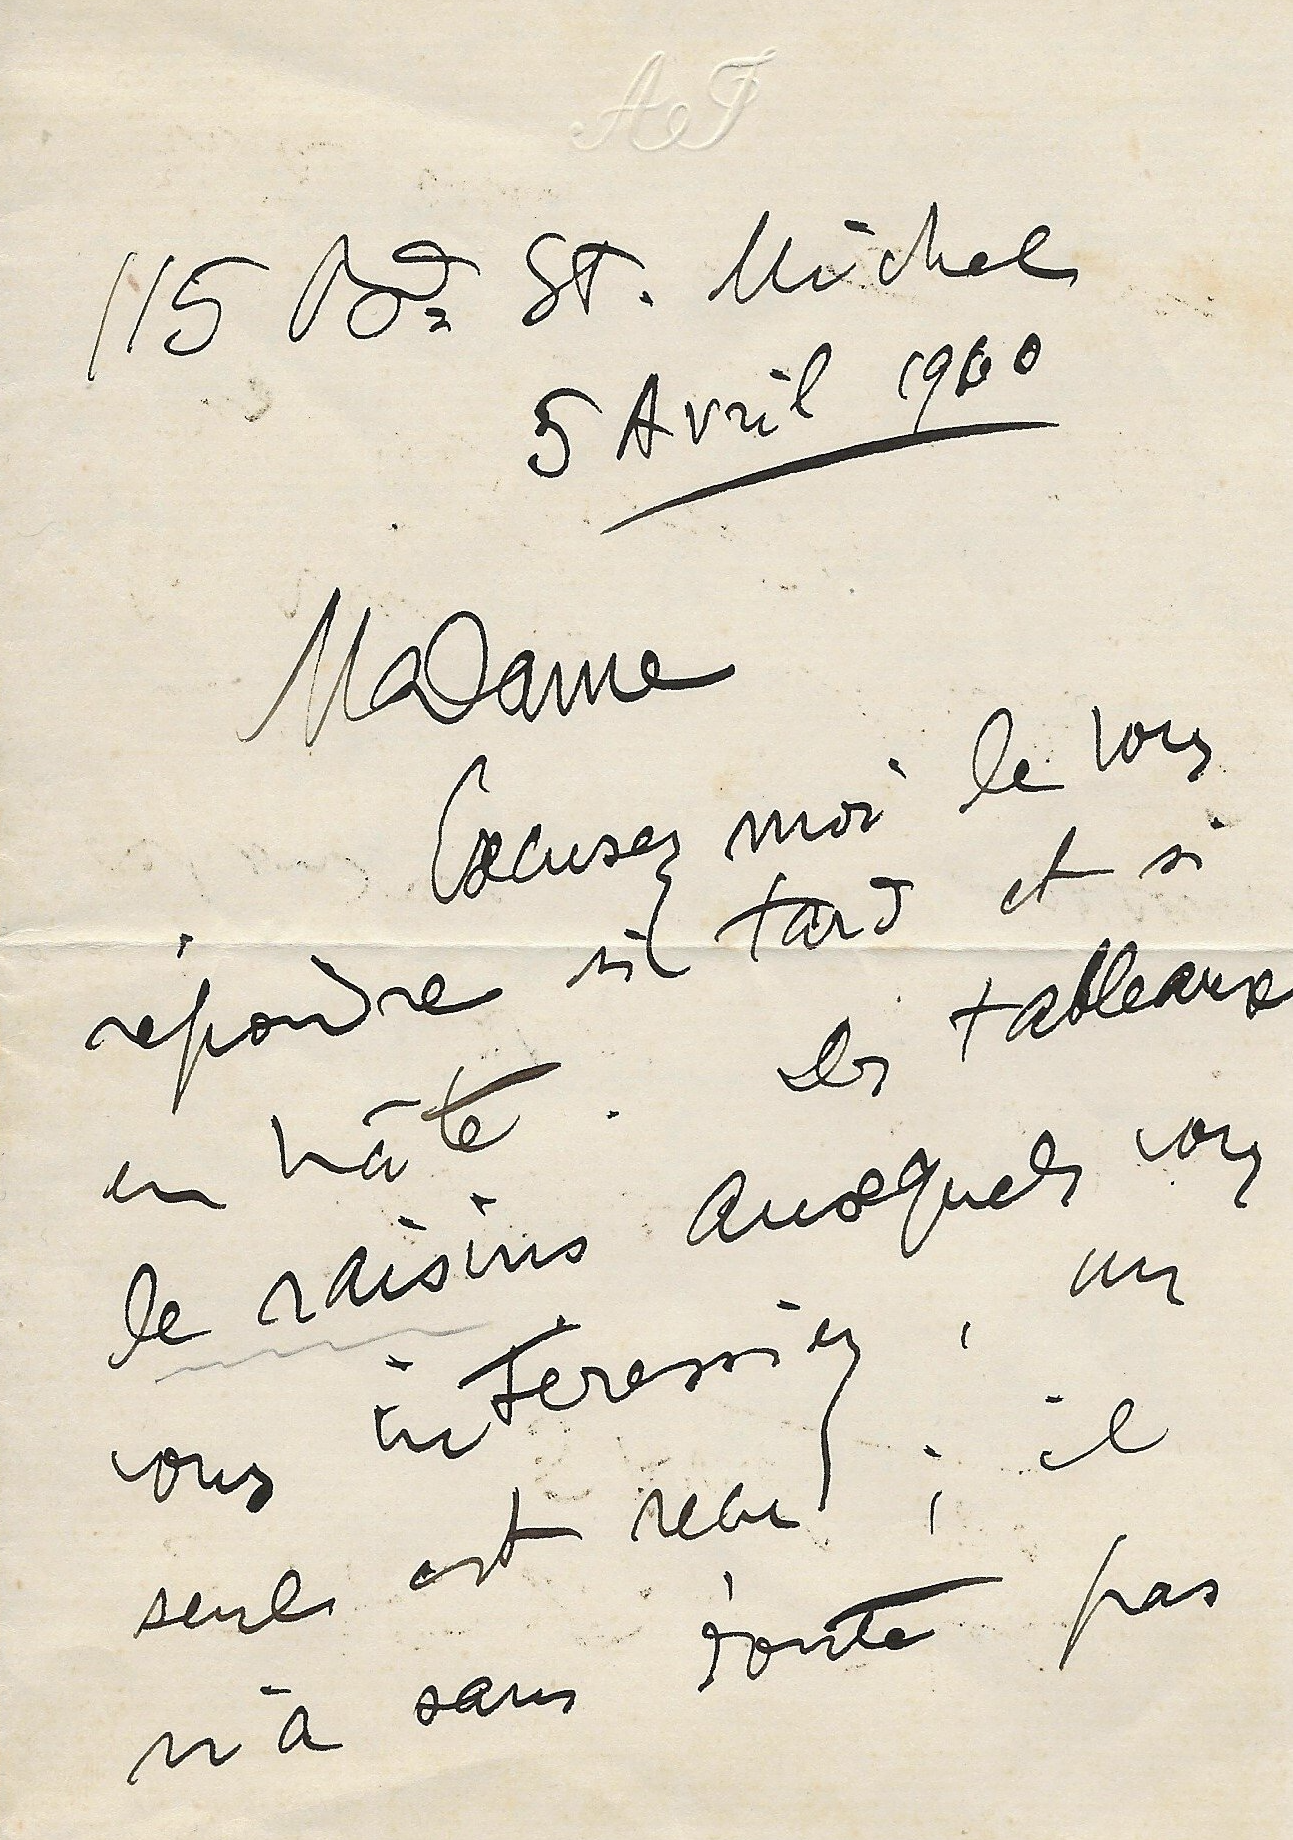 AJ
115 Bd St. Michel
5 Avril 1900
Madame
Excusez moi de vous
répondre si tard et si
en hâte. Les tableaux
de raisins auxquels vous
vous intéressiez, un
seul est reçu ; il
n'a sans doute pas